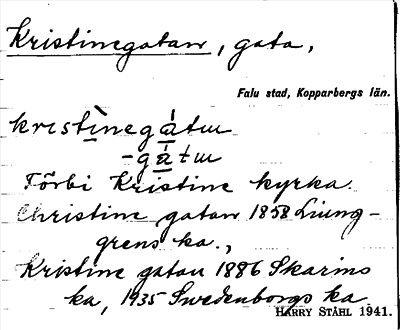 Kristinegatan, gata,
Falu stad, Kopparbergs län.
kristìnegátɯ
-gátɯ
Förbi Kristine kyrka.
Christine gatan 1858 Liung-
grens ka.,
Kristine gatan 1886 Skarins
ka, 1935 Swedenborgs ka
HARRY STÅHL 1941.